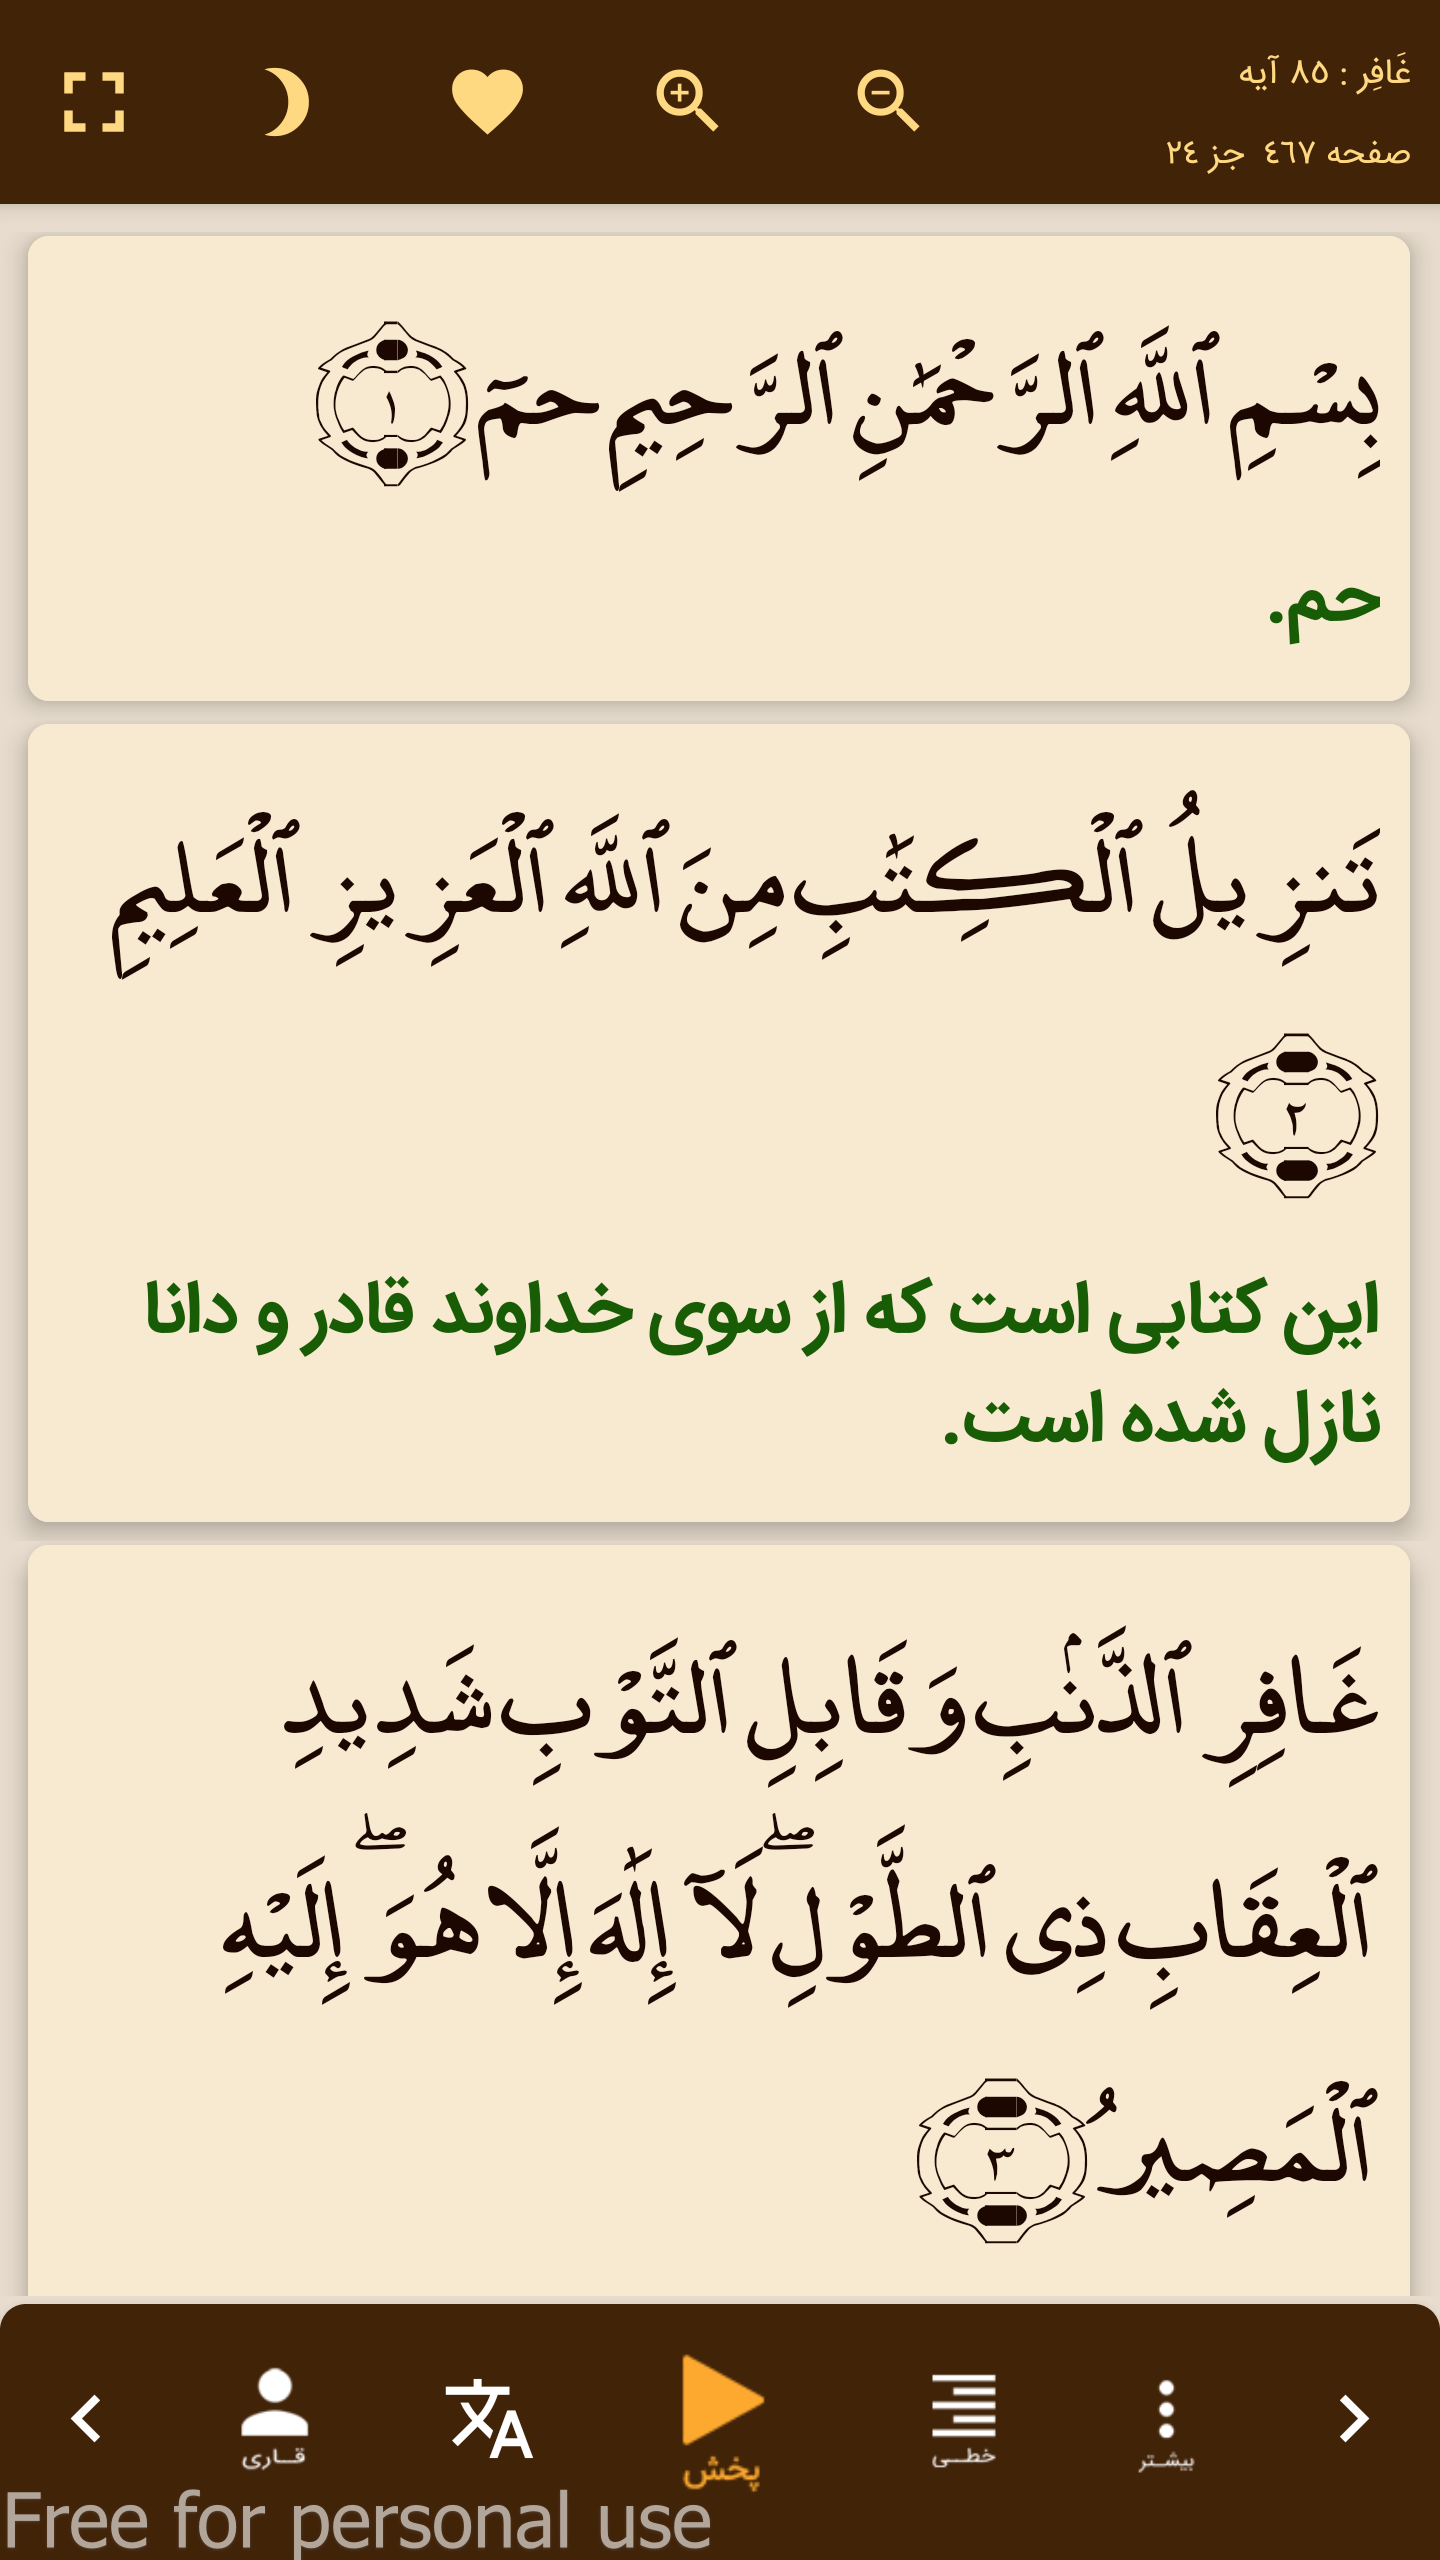 غَافِر : ٨٥ آیه
صفحه ٤٦٧ جز ٢٤
بِسْمِ ٱللَّهِ ٱلرَّحْمَٰنِ ٱلرَّحِيمِ حمٓ ١
حم.
تَنزِيلُ ٱلْكِتَٰبِ مِنَ ٱللَّهِ ٱلْعَزِيزِ ٱلْعَلِيمِ
٢
این کتابی است که از سوی خداوند قادر و دانا
نازل شده است.
غَافِرِ ٱلذَّنۢبِ وَقَابِلِ ٱلتَّوْبِ شَدِيدِ
ٱلْعِقَابِ ذِى ٱلطَّوْلِ ۖ لَآ إِلَٰهَ إِلَّا هُوَ ۖ إِلَيْهِ
ٱلْمَصِيرُ ٣
بیشتر خطی پخش قاری
Free for personal use